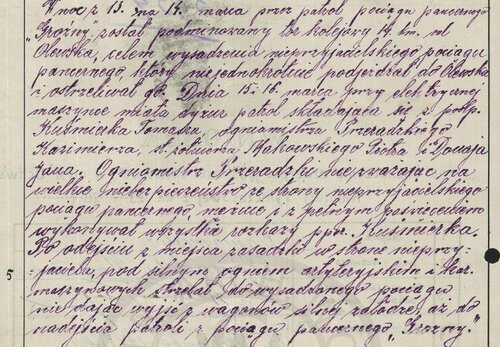 W noc z 13. na 14. marca przez patrol pociągu pancernego
„Groźny" został podminowany tor kolejowy 14. km. od
Olewska, celem wysadzenia nieprzyjacielskiego pociągu
pancernego, który niejednokrotnie podjeżdżał do Olewska
i ostrzeliwał go. Dnia 15 i 16. marca przy elektrycznej
maszynce miała dyżur patrol składająca się z ppor.
Kuśmierka Tomasza, ogniomistrza Przeradzkiego
Kazimierza, st. żołnierza Makowskiego Piotra i Donaja
Jana. Ogniomistrz Przeradzki nie zważając na
wielkie niebezpieczeństwo ze strony nieprzyjacielskiego
pociągu pancernego, mężnie i z pełnym poświęceniem
wykonywał wszystkie rozkazy ppor. Kuśmierka.
Po odejściu z miejsca zasadzki w stronę nieprzy-
-jaciela, pod silnym ogniem artyleryjskim i kar.
maszynowych strzelał do wysadzonego pociągu
nie dając wyjść z wagonów silnej załodze, aż do
nadejścia patroli z pociągu pancernego „Groźny."
5